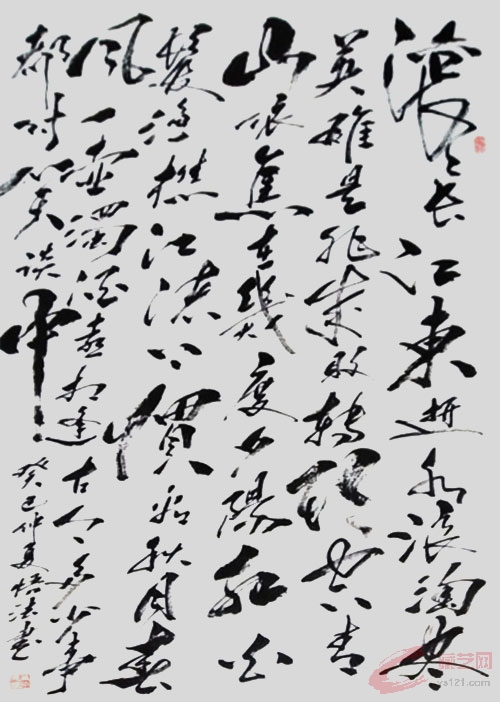 滚滚长江東逝水浪淘尽
英雄是非成敗转头空青
山依舊在幾度夕陽红白
髮渔樵江渚上慣看秋月春
風一壶濁酒喜相逢古今多少事
都付笑谈中
癸巳仲夏悟法书
艺网
ys121.com